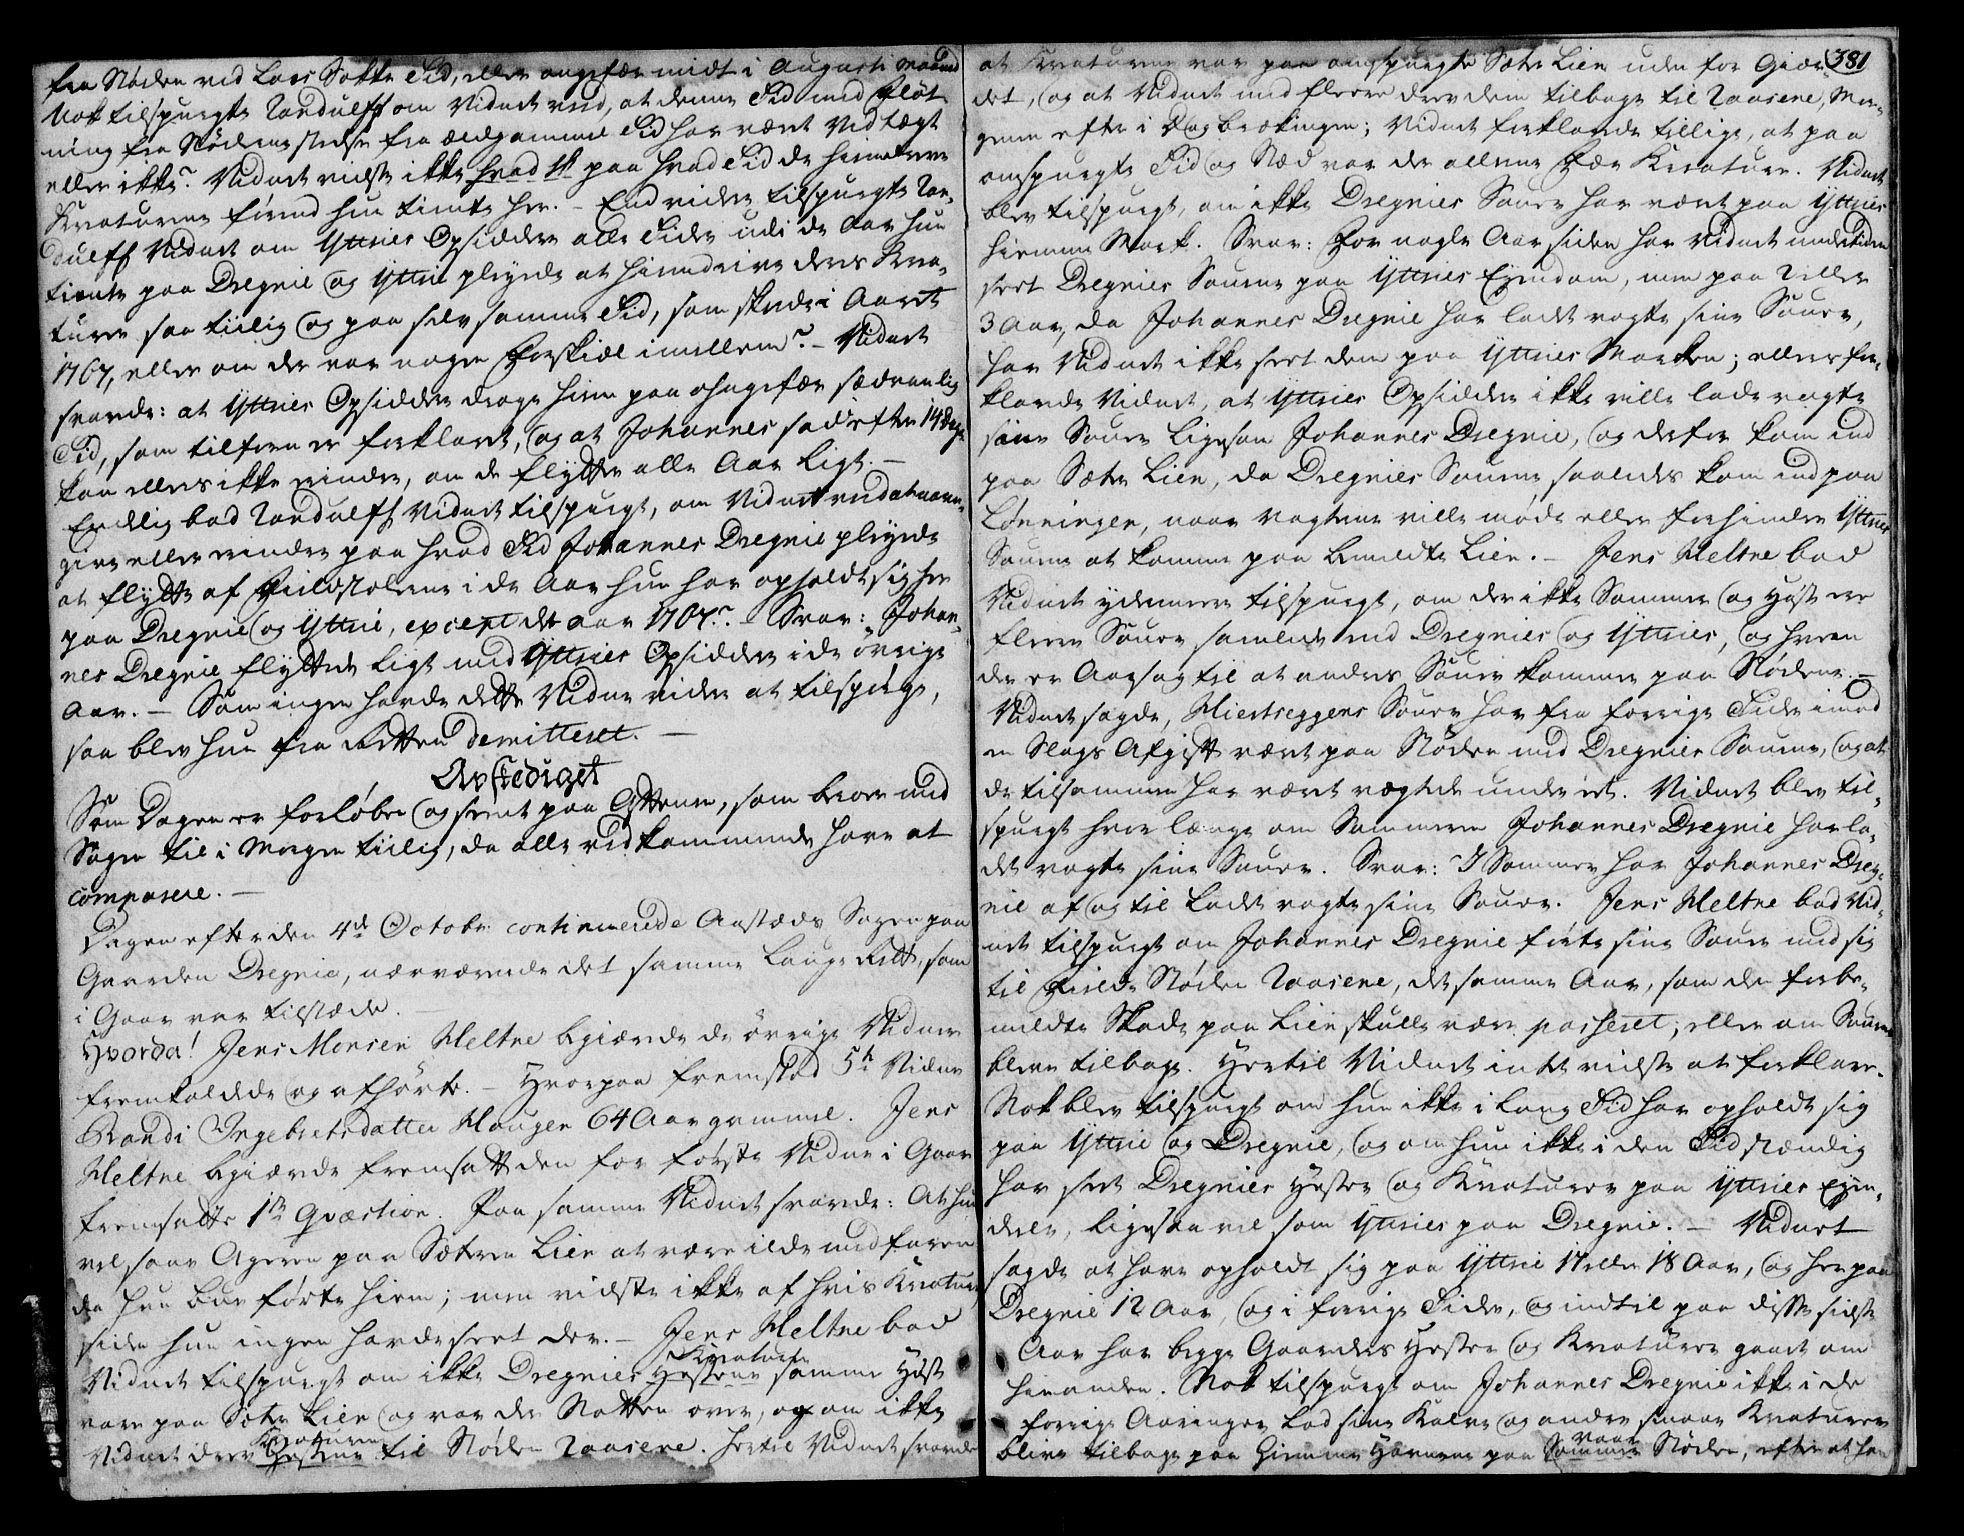 fra Støden ved Lars Sokke Tid, eller ongefær midt i Augusti Maaned
Nok tilspurgte Randulff om Vidnet veed, at denne Tid med Fløt-
ning fra Stødene stedse fra ældgammel Tid har været Vedtægt
eller ikke? Vidnet vidste ikke hvad sk paa hvad Tid de hiemførte
Kreaturene førend hun tiente her. - End videre tilspurgte Ran-
dulff Vidnet om Yttries Opsiddere alle Tider udi de Aar hun
tiente paa Dregnie og Yttrie pleyede at hiemdrive deres Krea-
turer saa tiilig og paa selv samme Tid, som skede i Aaret
1767, eller om der var nogen Forskiæl imellem? - Vidnet
svarede: at Yttries Opsiddere drage hiem paa ohngefær sædvanlig
Tid, som tilforn er forklaret, og at Johannes sad efter 14 Dage
kan ellers ikke minde, om de flyttede alle Aar ligt. -
Endelig bad Randulff Vidnet tilspurgt, om Vidnet veed at naavn-
give eller minde paa hvad Tid Johannes Dregnie pleyede
at flytte af Fieldstølene i de Aar hun har opholdt sig her
paa Dregnie og Yttrie, except det Aar 1767? - Svar: Johan-
nes Dregnie flyttede ligt med Yttries Opsiddere i de øvrige
Aar. - Som ingen havde dette Vidne videre at tilspørge,
saa blev hun fra Retten demitteret. -
Avskediget
Som Dagen er forløben og seent paa Aftenen, som beroer med
Sagen til i Morgen tiilig, da alle vedkommende have at
comparere. -
Dagen efter den 4de Octobr. continuerede Aastæds Sagen paa
Gaarden Dregnie, nærværende det samme Laug Rett, som
i Gaar var tilstæde. -
Hvorda! Jens Monsen Meltne begiærede de øvrige Vidner
fremkaldede og afhørte. - Hvorpaa fremstod 5te Vidne
Brandi Ingebretsdatter Haugen 64 Aar gammel. Jens
Meltne begiærede fremsatt den for første Vidne i Gaar
fremsatte 1te Qvæstion. Paa samme Vidnet svarede: At hun
vel saae Ageren paa Sætren Lien at være ilde medfaren
da hun bue førte hiem; men vidste ikke af hvis Kreatur
siden hun ingen havde seet der. - Jens Meltne bad
Vidnet tilspurgt om ikke Dregnies Hestene Kreature samme Høst
vare paa Sæter Lien og var der Natten over, og om ikke
Vidnet drev Hestene Kreaturene til Støden Raasene. Hertil Vidnet svarede
381
at Kreaturene var paa omspurgte Sæter Lien uden for Gier-
det, og at Vidnet med fleere drev dem tilbage til Raasene, Mor-
genen efter i Dagbrækingen; Vidnet forklarede tillige, at paa
omspurgte Tid og Stæd var der allene Fæe Kreature. Vidnet
blev tilspurgt, om ikke Dregnies Souer har været paa Yttries
hiemme Mark. Svar: For nogle Aar siden har Vidnet undertiden
seet Dregnies Souene paa Yttries Eyendom, men paa 2 eller
3 Aar, da Johannes Dregnie har ladet vogte sine Souer,
har Vidnet ikke seet dem paa Yttries Marken; ellers for-
klarede Vidnet, at Yttries Opsiddere ikke ville lade vogte
sine Souer ligesom Johannes Dregnie, og derfor kom ind
paa Sæter Lien, da Dregnies Souene saaledes kom ind paa
Lønningen, naar Vogterne ville møde eller forhindre Yttries
Souene at komme paa bemeldte Lien. - Jens Meltne bad
Vidnet ydermere tilspurgt, om der ikke Sommer og Høst ere
fleere Souer samlede end Dregnies og Yttries, og hvem
der er Aarsag til at andres Souer kommer paa Stødene. -
Vidnet sagde, Miertseggens Souer har fra forrige Tider imod
en Slags Afgift været paa Støden med Dregnies Souene, og at
de tilsammen har været vogtede under eet. Vidnet blev til-
spurgt hvor længe om Sommeren Johannes Dregnie har la-
det vogte sine Souer. Svar: I Sommer har Johannes Dreg-
nie af og til ladet vogte sine Souer. Jens Meltne bad Vid-
net tilspurgt om Johannes Dregnie førte sine Souer med sig
til Field Støden Raasene, det samme Aar, som den forbe-
meldte Skade paa Lien skulle være passeret; eller om Souene
bleve tilbage. Hertil Vidnet intet vidste at forklare.
Nok blev tilspurgt om hun ikke i lang Tid har opholdt sig
paa Yttrie og Dregnie, og om hun ikke i den Tid stændig
har seet Dregnies Hester og Kreaturer paa Yttries Eyen-
dele, ligesaa vel som Yttries paa Dregnie. - Vidnet
sagde at have opholdt sig paa Yttrie 17 eller 18 Aar, og her paa
Dregnie 12 Aar, og i forrige Tider, og indtil paa disse sidste
Aar har begge Gaardes Hester og Kreaturer gaaet om
hinanden. Nok tilspurgt om Johannes Dregnie ikke i de
forrige Aaringer lod sine Kalve og andre smaae Kreaturer
blive tilbage paa Hiemme Havnene paa Sommer vaar Støden, efter at han